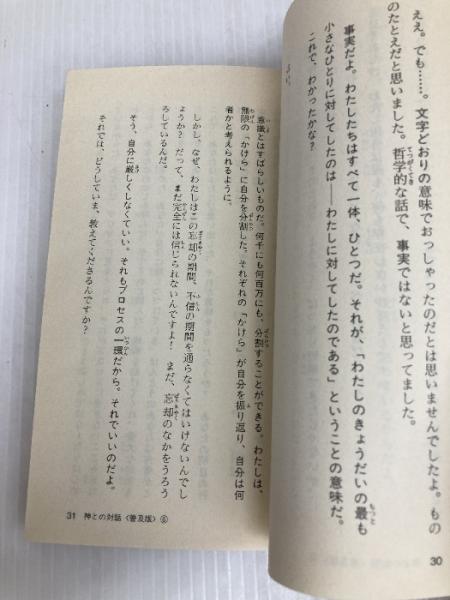 ええ。でも……。文字どおりの意味でおっしゃったのだとは思いませんでしたよ。もの
のたとえだと思いました。哲学的な話で、事実ではないと思ってました。
事実だよ。わたしたちはすべて一体、ひとつだ。それが、「わたしのきょうだいの最も
小さなひとりに対してしたのは――わたしに対してしたのである」ということの意味だ。
これで、わかったかな?
30
意識とはすばらしいものだ。何千にも何百万にも、分割することができる。わたしは、
無限の「かけら」に自分を分割した。それぞれの「かけら」が自分を振り返り、自分は何
者かと考えられるように。
しかし、なぜ、わたしはこの忘却の期間、不信の期間を通らなくてはいけないんでし
ょうか? だって、まだ完全には信じられないんですよ! まだ、忘却のなかをうろう
ろしているんだ。
そう、自分に厳しくしなくていい。それもプロセスの一環だから。それでいいのだよ。
それでは、どうしていま、教えてくださるんですか?
31 神との対話〈普及版〉⑥